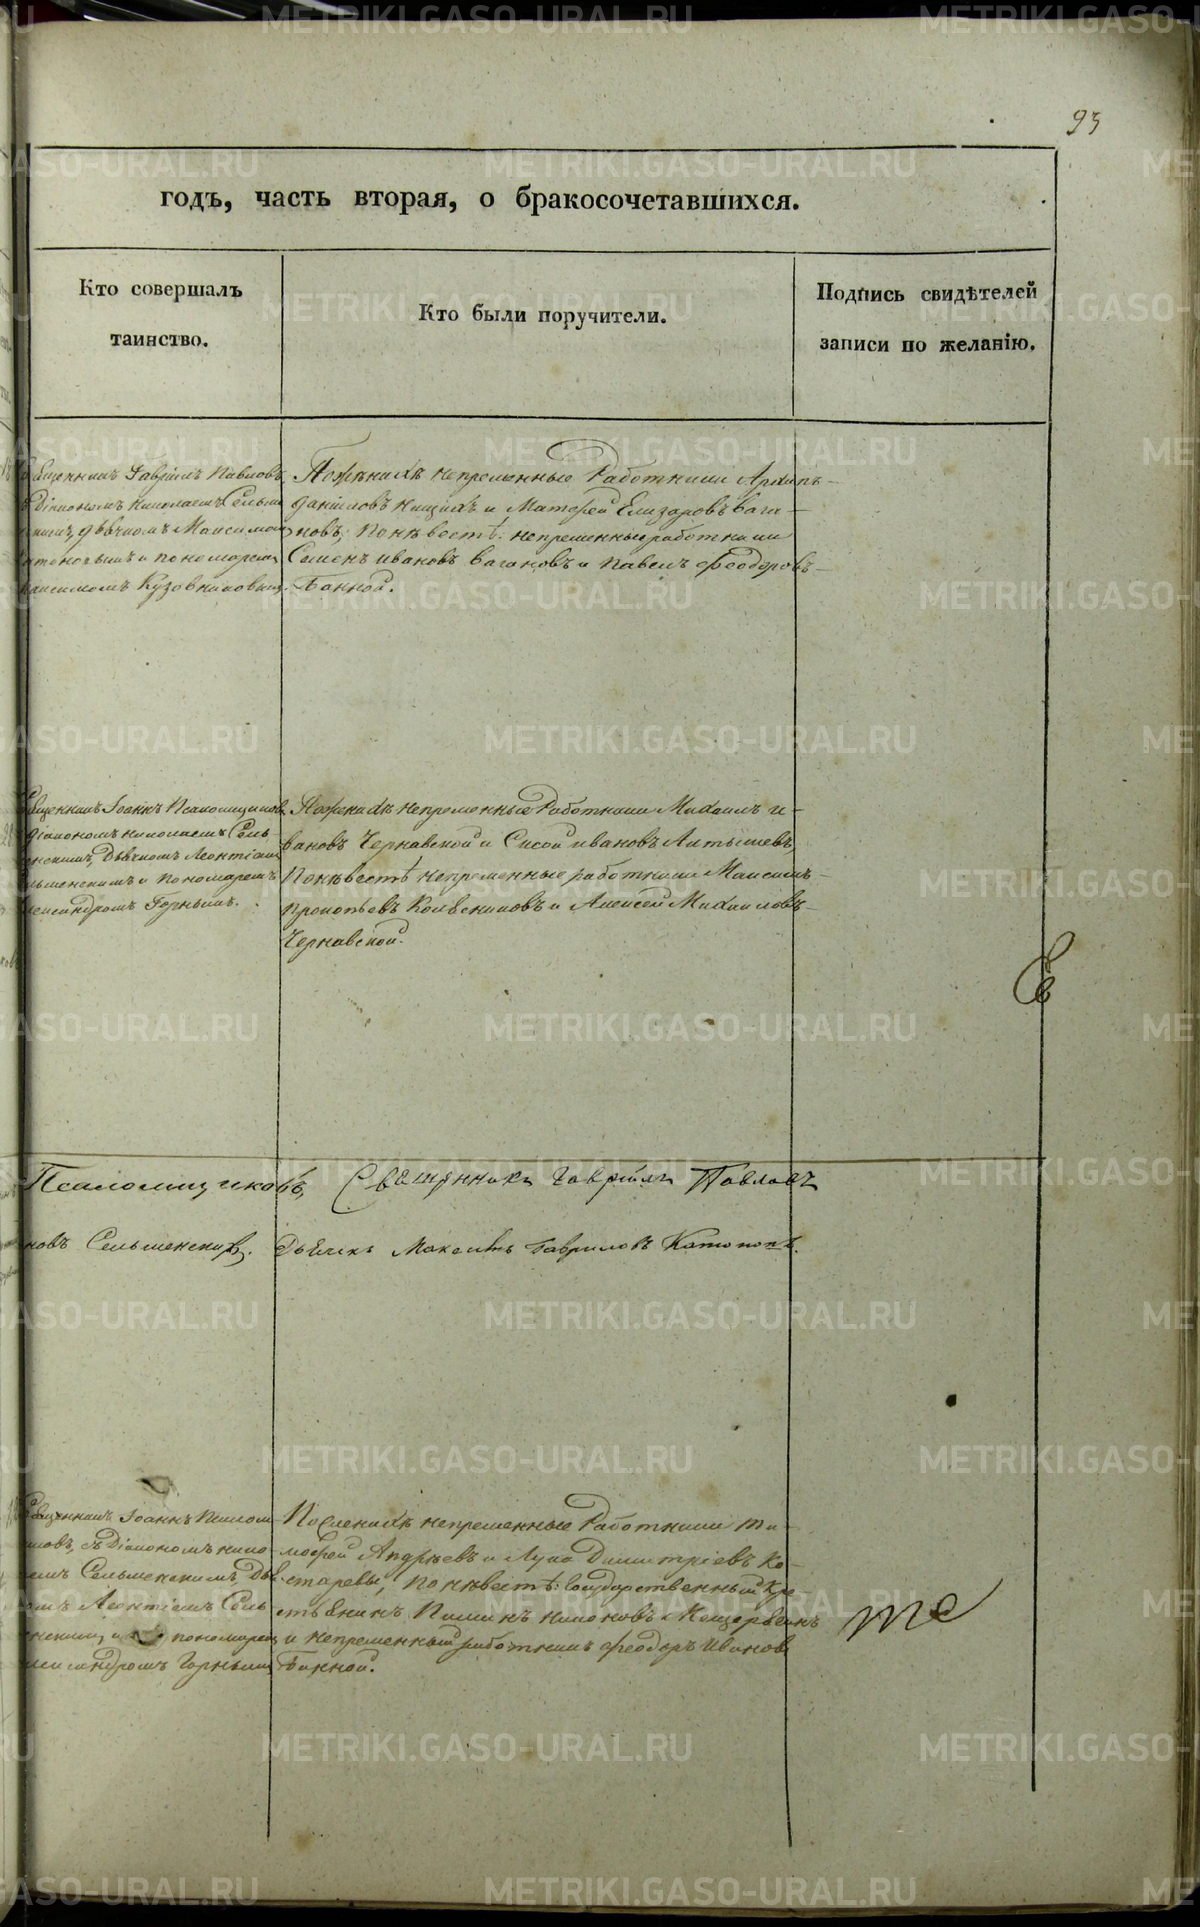 93
годъ, часть вторая, о бракосочетавшихся.
Кто совершалъ
таинство.
Кто были поручители.
Подпись свидѣтелей
записи по желанію.
Гавріилъ Павловъ
Діакономъ Николаемъ Сельм
Дьячкомъ Максимом
и пономарем
Кузовниковым
По женихѣ непременные Работники Архипъ
Даниловъ Кищихъ и Матфей Елизаровъ Вага-
новъ; по невѣстѣ: непременные работники
Семенъ Ивановъ Вагановъ и Павелъ Феодоровъ
Банной.
Священникъ Іоаннъ Псаломщиков
Діакономъ Николаемъ Сель-
менскимъ, Дьячкомъ Леонтіем
Сельменскимъ и Пономаремъ
Александромъ Горнымъ.
По женихѣ непременные Работники Михаилъ И-
вановъ Чернавской и Сысой Ивановъ Латышевъ
По невѣстѣ непременные работники Максимъ
Прокопьевъ и Алексей Михаиловъ
Чернавской.
Псаломщиковъ, Священникъ Гавріилъ Павловъ
новъ Сельменскій. Дьячекъ Максимъ Гавриловъ
Священникъ Іоаннъ Псалом
Діакономъ Нико-
лаемъ Сельменскимъ, Дья
Леонтіемъ Сель
менскимъ и пономаремъ
Александромъ Горнымъ
По женихѣ непременные Работники Ти-
мофей Андреевъ и Лука Димитріевъ Ко-
старевы, по невѣстѣ: Государственный кре-
стьянинъ
и непременный работникъ Феодоръ Ивановъ
Банной.
METRIKI.GASO-URAL.RU